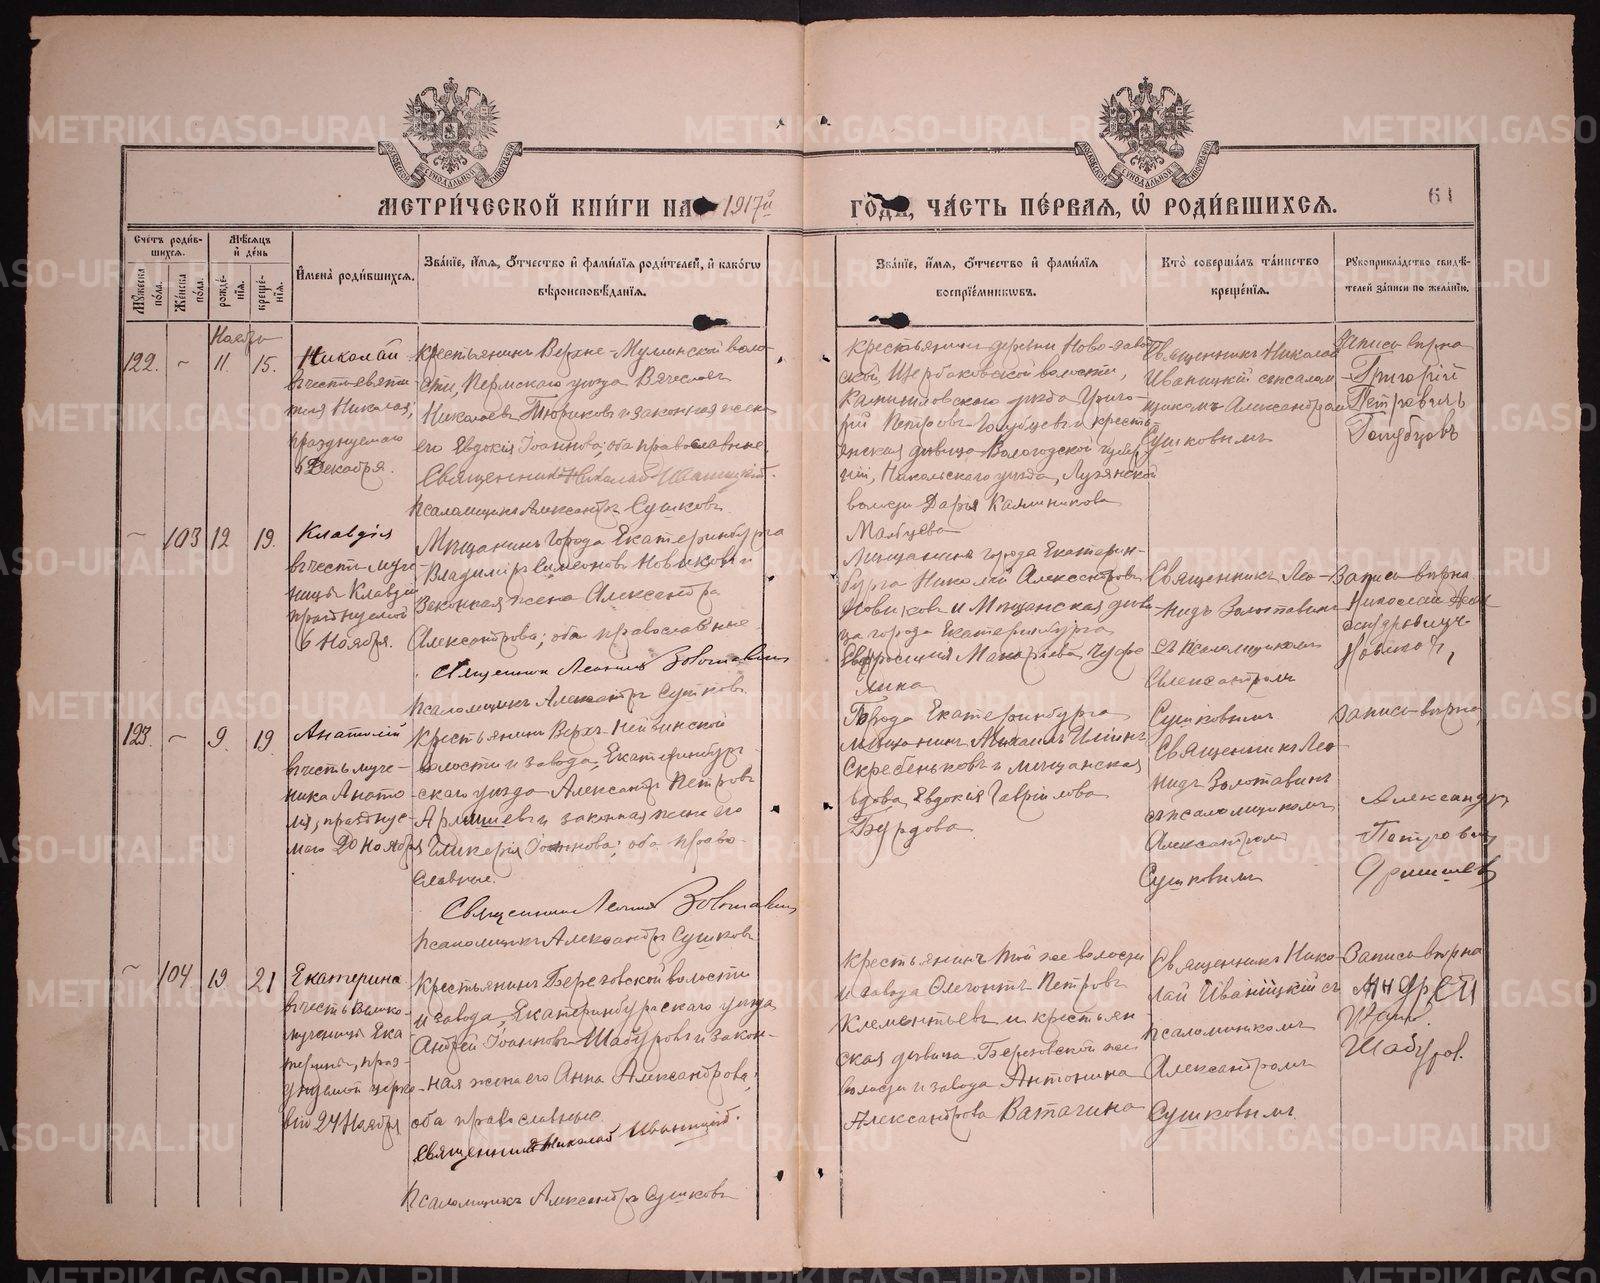 МЕТРИ́ЧЕСКОЙ КНИ́ГИ НА 1917й ГО́ДЪ, ЧА́СТЬ ПЕ́РВАЯ, Ѡ РОДИ́ВШИХСЯ.
61
Счетъ роди́вшихся.
Мѣсяцъ и́ де́нь
Мужеска по́ла.
Же́нска по́ла.
рожде́нія.
креще́нія.
И҆мена̀ роди́вшихся.
Зва́ніе, и҆́мя, ѻ҆́тчество и҆ фами́лія роди́телей, и҆ како́гѡ
вѣроисповѣ́данія.
Зва́ніе, и҆́мя, ѻ҆́тчество и҆ фами́лія
воспріе́мниковъ.
Кто̀ соверша́лъ та́инство
креще́нія.
Рукоприкла́дство свидѣ́-
телей за́писи по жела́нію.
Ноябрь
122. – 11. 15.
Николай
въ честь святи-
теля Николая,
празднуемаго
6 Декабря.
Крестьянинъ Верхне-Муллинской воло-
сти, Пермскаго уезда Вячеславъ
Николаевъ Тюриковъ и законная жена
его Евдокія Іоаннова; оба православные.
Священникъ Николай Иваницкій.
Псаломщикъ Александръ Сушковъ.
Крестьянинъ деревни Ново-
ской, Щербаковской волости,
Камышловскаго уезда Григо-
рій Петровъ Голубцевъ и кресть-
янская девица Вологодской губер-
ніи, Никольскаго уезда, Лузянской
волости Дарья Калиникова
Мальцева
Священникъ Николай
Иваницкій съ псалом-
щикомъ Александромъ
Сушковымъ
Запись верна
Григорій
Петровичъ
Голубцовъ
– 103 12 19.
Клавдія
въ честь муче-
ницы Клавдіи
празднуемой
6 Ноября.
Мещанинъ города Екатеринбурга
Владиміръ Симеоновъ Новиковъ и
законная жена Александра
Александрова; оба православные.
Священникъ Леонидъ Золотавинъ
Псаломщикъ Александръ Сушковъ
Мещанинъ города Екатерин-
бурга Николай Александровъ
Новиковъ и Мещанская деви-
ца города Екатеринбурга
Евфросинія Макарьева Чуфе
лина
Священникъ Лео-
нидъ Золотавинъ
съ псаломщикомъ
Александромъ
Сушковымъ
Запись верна
Николай Алек
сандровичъ
Новиковъ
123. – 9. 19.
Анатолій
въ честь муче-
ника Анато-
лія, праздну-
маго 20 Ноября
Крестьянинъ Верхъ Нейвинской
волости и завода, Екатеринбург-
скаго уезда Александръ Петровъ
Армишевъ и законная жена его
Гликерія Іоаннова; оба право-
славные.
Священникъ Леонидъ Золотавинъ
Псаломщикъ Александръ Сушковъ
Города Екатеринбурга
мещанинъ Михаилъ Иліинъ
Скребеньковъ и мещанская
вдова Евдокія Гавріилова
Бердова
Священникъ Лео-
нидъ Золотавинъ
съ псаломщикомъ
Александромъ
Сушковымъ
Запись верна
Александръ
Петровичъ
– 104 19. 21
Екатерина
въ честь велико-
мученицы Ека
терины, праз-
дуемой церко-
вію 24 Ноября
Крестьянинъ Березовской волости
и завода, Екатеринбургскаго уезда
Андрей Іоанновъ Шабуровъ и закон-
ная жена его Анна Александрова;
оба православные
Священникъ Николай Иваницкій.
Псаломщикъ Александръ Сушковъ
Крестьянинъ той же волости
и завода Олегонтъ Петровъ
Клементьевъ и крестьян
ская девица Березовской же
волости и завода Антонина
Александрова Ватагина
Священникъ Нико-
лай Иваницкій съ
псаломщикомъ
Александромъ
Сушковымъ.
Запись верна
Андрей
Иван.
Шабуров.
METRIKI.GASO-URAL.RU